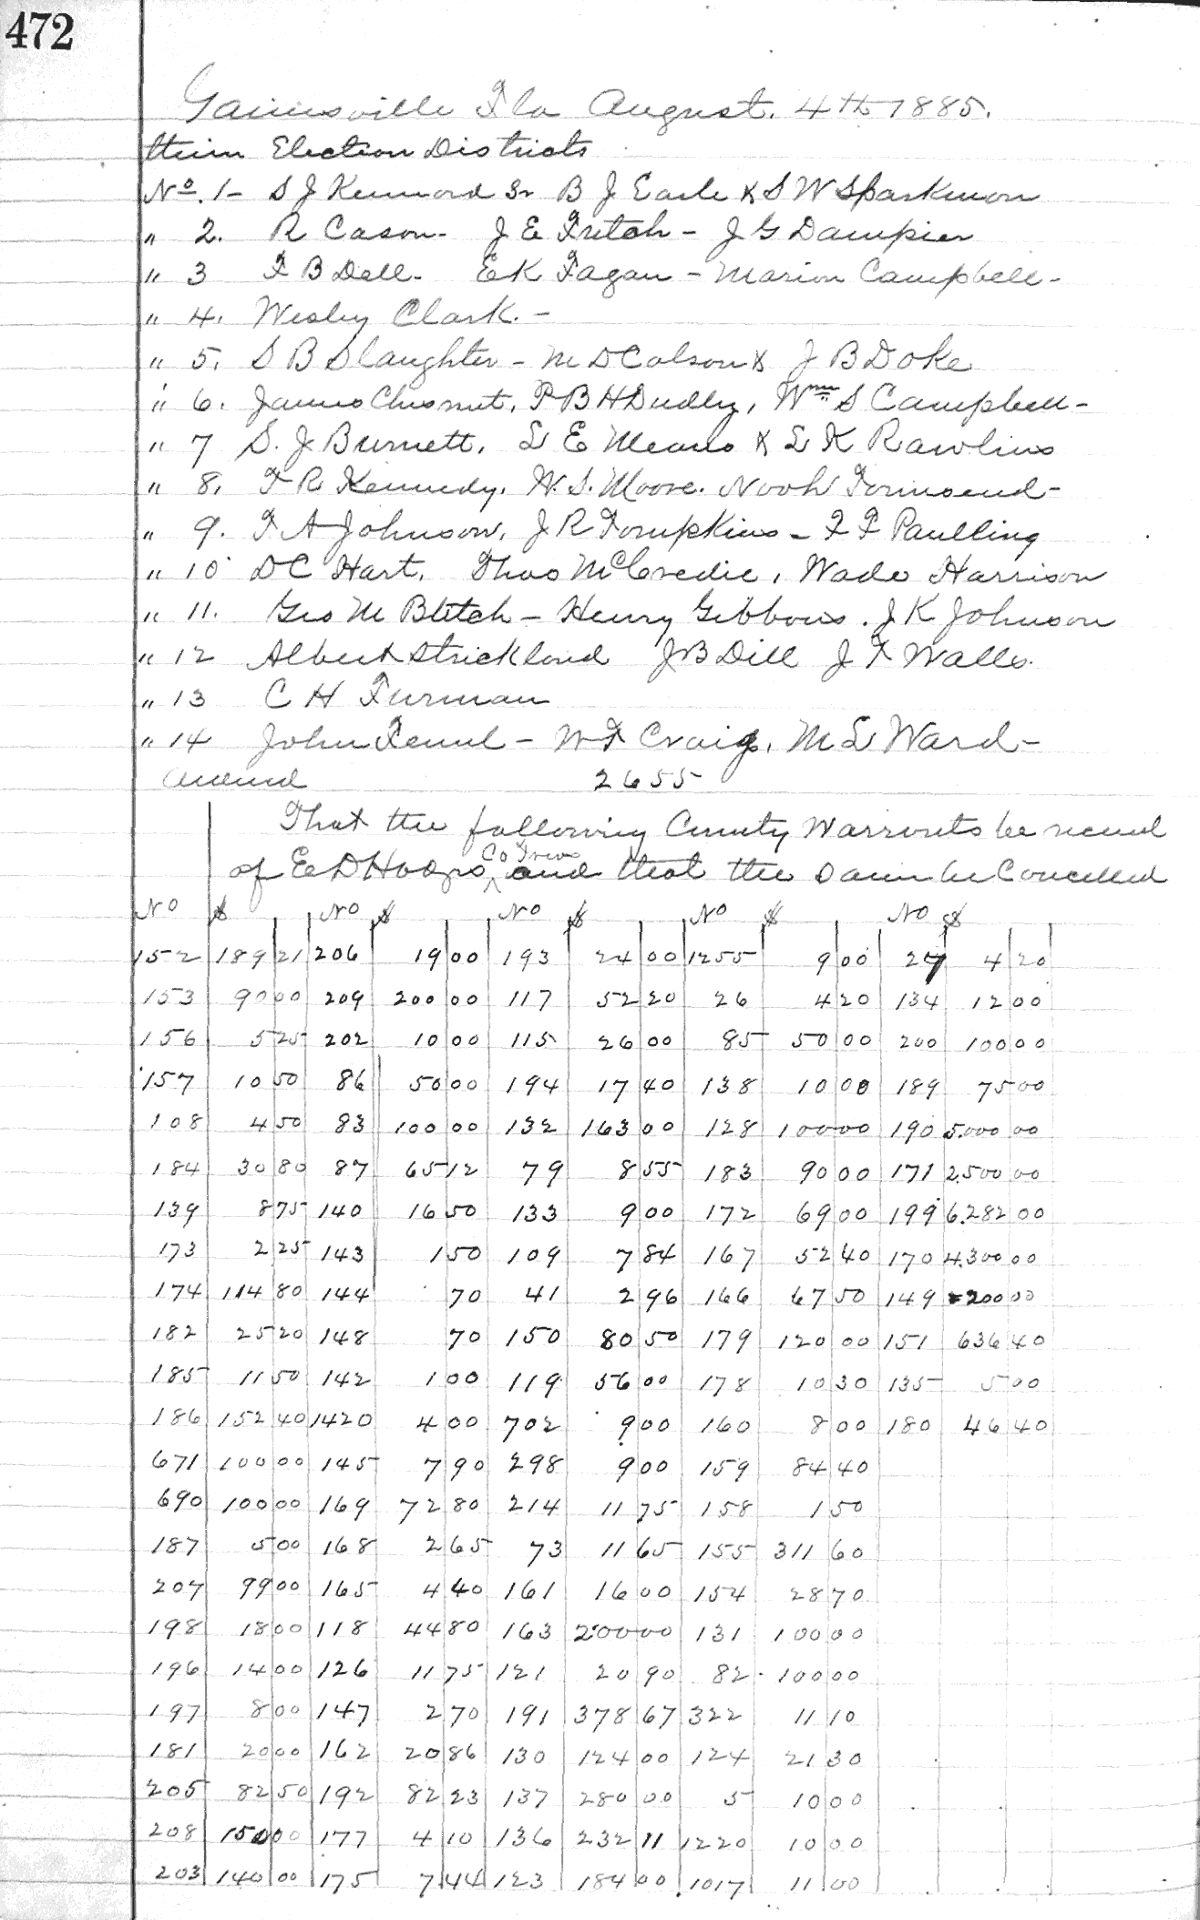 472
Gainesville Fla August. 4th 1885.
their Election Districts
No. 1- S J Kennard Sr B J Earle & S W Sparkman
" 2. R Cason- J E Futch - J G Dampier
" 3 F B Dell- E K Fagan - Marion Campbell-
" 4. Wesley Clark.-
" 5. S B Slaughter - M D Colson & J B Doke
" 6. James Chesnut, P B H Dudley, Wm S Campbell-
" 7 S. J Burnett, L E Means & L K Rawlins
" 8. F R Kennedy, W. S. Moore. Noah Townsend-
" 9. F A Johnson, J R Tompkins - F F Paulling
" 10 D C Hart, Thos McCredie, Wade Harrison
" 11. Geo M Blitch - Henry Gibbons. J K Johnson
" 12 Albert Strickland J B Dill J F Walls.
" 13 C H Furman
" 14 John - W F Craig, M L Ward-
2655
That the following County Warrants be received
of E D Hodges Co Treas and that the Same be Cancelled
No $ No $ No $ No $ No $
152 189 21 206 19 00 193 24 00 1255 9 00 27 4 20
153 90 00 209 200 00 117 52 20 26 4 20 134 12 00
156 5 25 202 10 00 115 26 00 85 50 00 200 100 00
157 10 50 86 50 00 194 17 40 138 10 00 189 75 00
108 4 50 83 100 00 132 163 00 128 100 00 190 5000 00
184 30 80 87 65 12 79 8 55 183 90 00 171 2500 00
139 8 75 140 16 50 133 9 00 172 69 00 199 6282 00
173 2 25 143 1 50 109 7 84 167 52 40 170 4300 00
174 114 80 144 70 41 2 96 166 67 50 149 200 00
182 25 20 148 70 150 80 50 179 120 00 151 636 40
185 11 50 142 1 00 119 56 00 178 10 30 135 5 00
186 152 40 1420 4 00 702 9 00 160 8 00 180 46 40
671 100 00 145 7 90 298 9 00 159 84 40
690 100 00 169 72 80 214 11 75 158 1 50
187 5 00 168 2 65 73 11 65 155 311 60
207 99 00 165 4 40 161 16 00 154 28 70
198 18 00 118 44 80 163 200 00 131 100 00
196 14 00 126 11 75 121 20 90 82 100 00
197 8 00 147 2 70 191 378 67 322 11 10
181 20 00 162 20 86 130 124 00 124 21 30
205 82 50 192 82 23 137 280 00 5 10 00
208 150 00 177 4 10 136 232 11 1220 10 00
203 140 00 175 7 44 123 184 00 1017 11 00